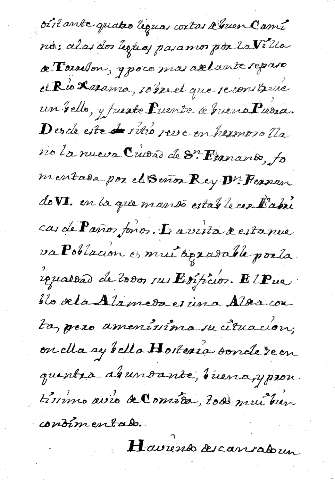 distante quatro leguas cortas de buen Cami
no; alas dos leguas pasamos por la Villa
de Torrejon, y poco mas adelante se paso
el Rio Xarama, sobre el que se construie
un bello, y fuerte Puente de buena Piedra.
Desde este sitio se ve en hermoso lla
no la nueva Ciudad de Sn. Fernando, fo
mentada por el Señor Rey Dn. Fernan
do VI. en la que mando establecer Fabri
cas de Paños finos. La vista de esta nue
va Poblacion es mui agradable por la
igualdad de todos sus Edificios. El Pue
blo de la Alameda es una Aldea cor
ta, pero amenissima su situacion;
en ella ay bella Hosteria donde se en
quentra abundante, buena, y pron
tissimo avio de Comida, todo mui bien
condimentado.
Haviendo descansado un